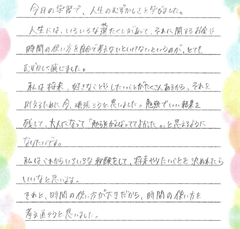 今日の学習で、人生のむずかしさを学びました。
人生には、いろいろな選たくしがあって、それに関するお金と
時間の使い方を自分で考えないといけないというのが、とても
むずかしく感じました。
私は将来、好きなことやしたいことがたくさんあるから、それを
叶えるために今、頑張ろうと思いました。勉強でいい結果を
残して、大人になって「勉強がんばっててよかった。」と思えるように
なりたいです。
私はこれからいろいろな経験をして、将来やりたいことを決めれたら
いいなと思います。
それと、時間の使い方が下手だから、時間の使い方を
考え直そうと思いました。